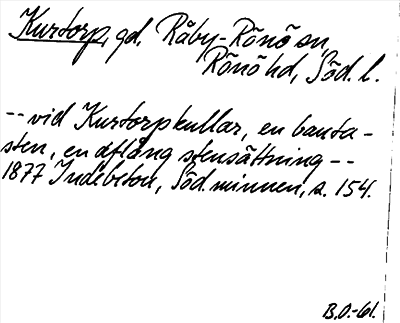 Kurtorp, gd, Råby-Rönö sn,
Rönö hd, Söd. l.
-- vid Kurtorp kullar, en bauta-
sten, en aflång stensättning --
1877 Indebetou, Söd. minnen, s. 154.
B.O.-61.